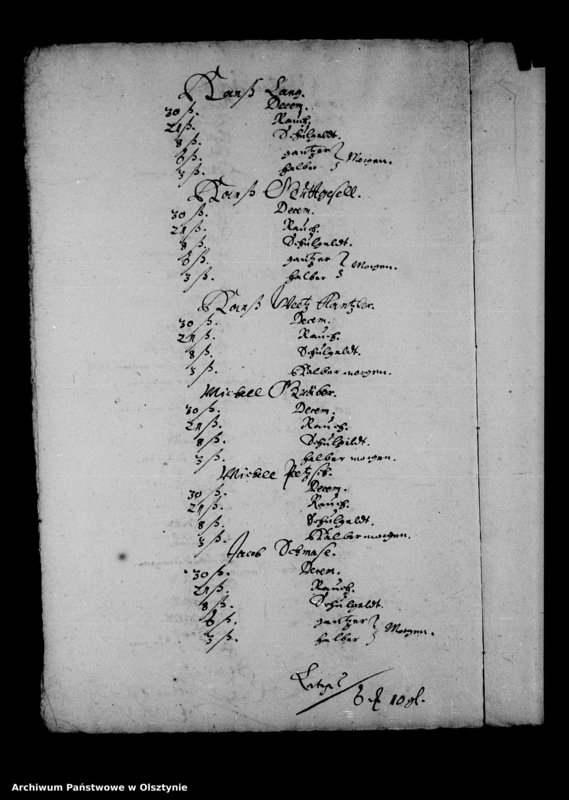 Hanß Lang.
30 ß. Decem.
24 ß. Rauch.
8 ß. Schulgeldt.
6 ß. gantzer
3 ß. halber } Morgen.
Hanß
30 ß. Decem.
24 ß. Rauch.
8 ß. Schulgeldt.
6 ß. gantzer
3 ß. halber } Morgen.
Hanß
30 ß. Decem.
24 ß. Rauch.
8 ß. Schulgeldt.
3 ß. Halber morgen.
Michell
30 ß. Decem.
24 ß. Rauch.
8 ß. Schulgeldt.
3 ß. halber morgen.
Michell
30 ß. Decem.
24 ß. Rauch.
8 ß. Schulgeldt.
3 ß. Halber morgen.
Jacob Schmase.
30 ß. Decem.
24 ß. Rauch.
8 ß. Schulgeldt.
6 ß. gantzer
3 ß. halber } Morgen.
6 10 gl.
Archiwum Państwowe w Olsztynie